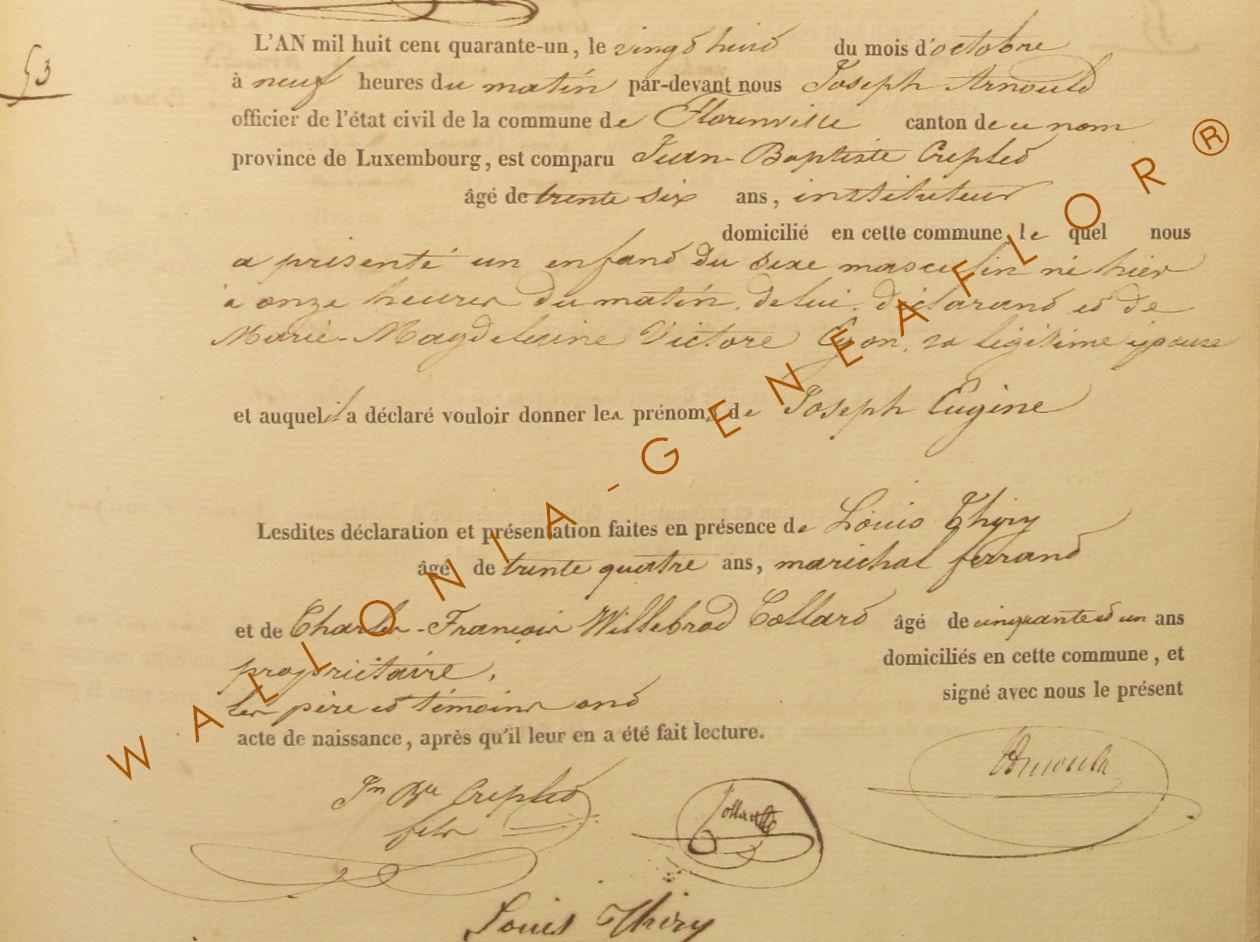 53
L'AN mil huit cent quarante-un, le vingt huit du mois d'octobre
à neuf heures du matin par-devant nous Joseph Arnould
officier de l'état civil de la commune de Florenville canton de ce nom
province de Luxembourg, est comparu Jean-Baptiste Crepled
âgé de trente six ans, instituteur
domicilié en cette commune, le quel nous
a présenté un enfant du sexe masculin né hier
à onze heures du matin, de lui, déclarant et de
Marie-Magdeleine Victore sa légitime épouse
et auquel il a déclaré vouloir donner les prénoms de Joseph Eugène
Lesdites déclaration et présentation faites en présence de Louis Thiry
âgé de trente quatre ans, maréchal ferrant
et de Charles-François Willebrod Collard âgé de cinquante et un ans
propriétaire, domiciliés en cette commune, et
les père et témoins ont signé avec nous le présent
acte de naissance, après qu'il leur en a été fait lecture.
Jn Bte Crepled Collard Arnould
fils
Louis Thiry
WALLONIA-GENEAFLOR®